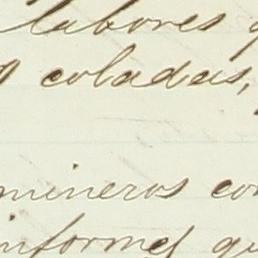 labores
coladas,
mineros con
informes qu